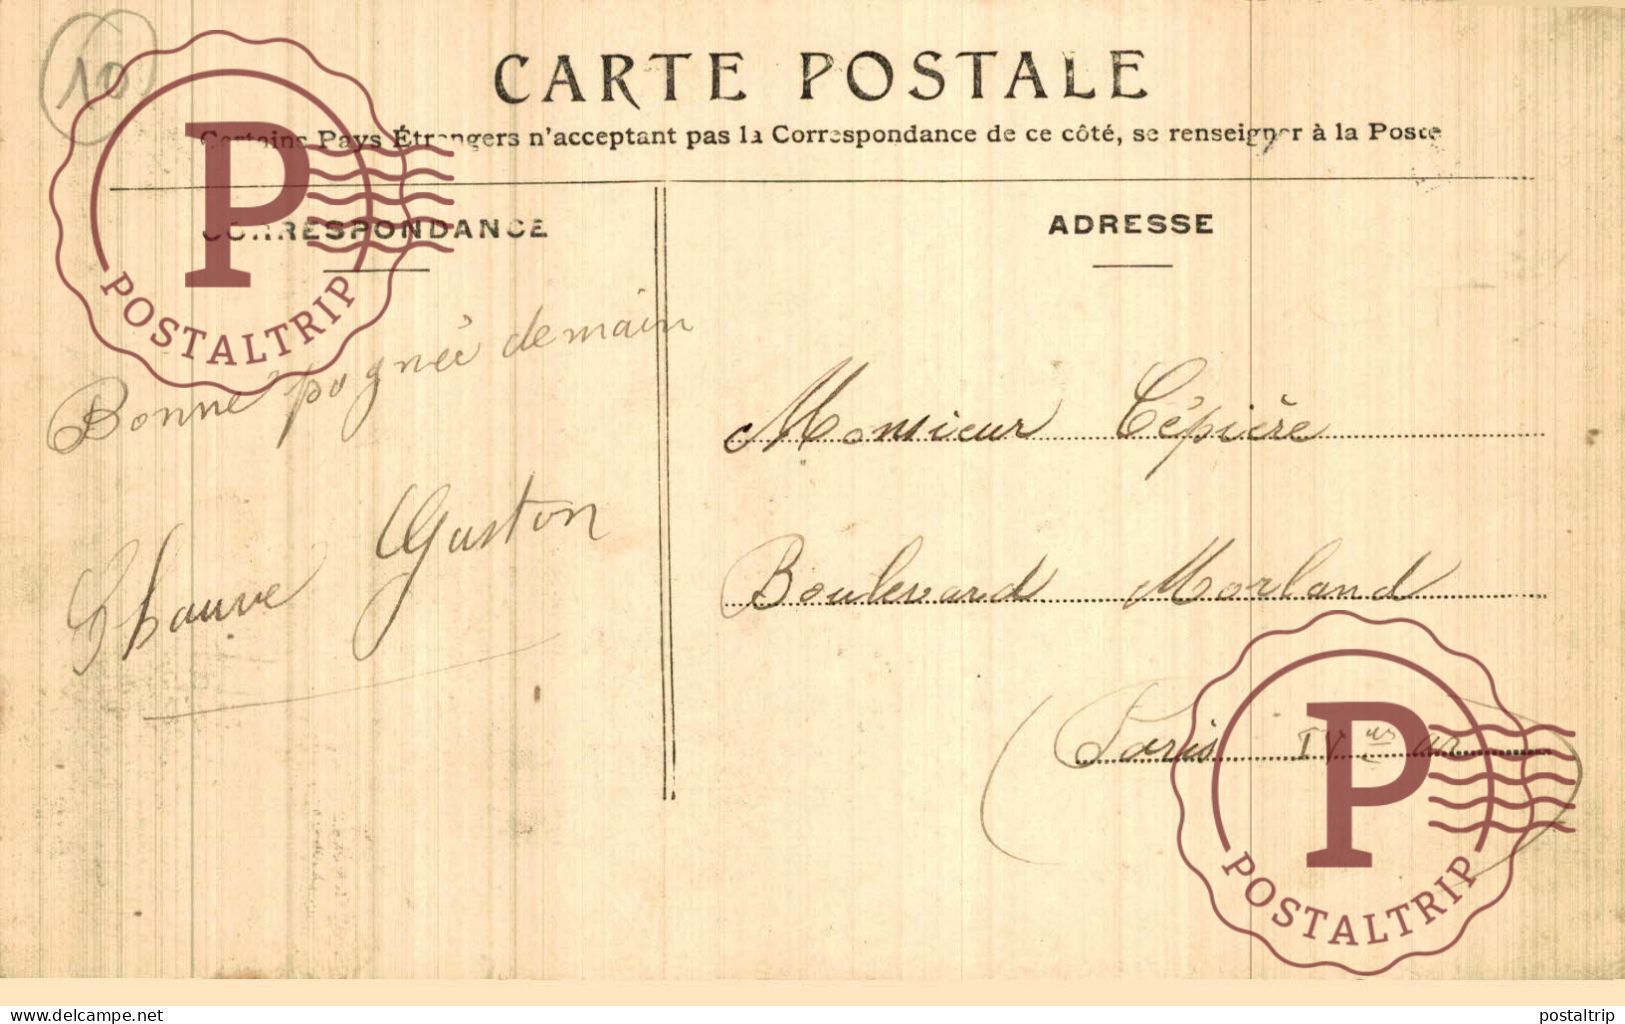 10
CARTE POSTALE
Certains Pays Étrangers n'acceptant pas la Correspondance de ce côté, se renseigner à la Poste
CORRESPONDANCE
Bonne pognée demain
Chauve Gaston
ADRESSE
Monsieur Cépière
Boulevard Morland
Paris IV ar
P
POSTALTRIP
P
POSTALTRIP
www.delcampe.net
postaltrip